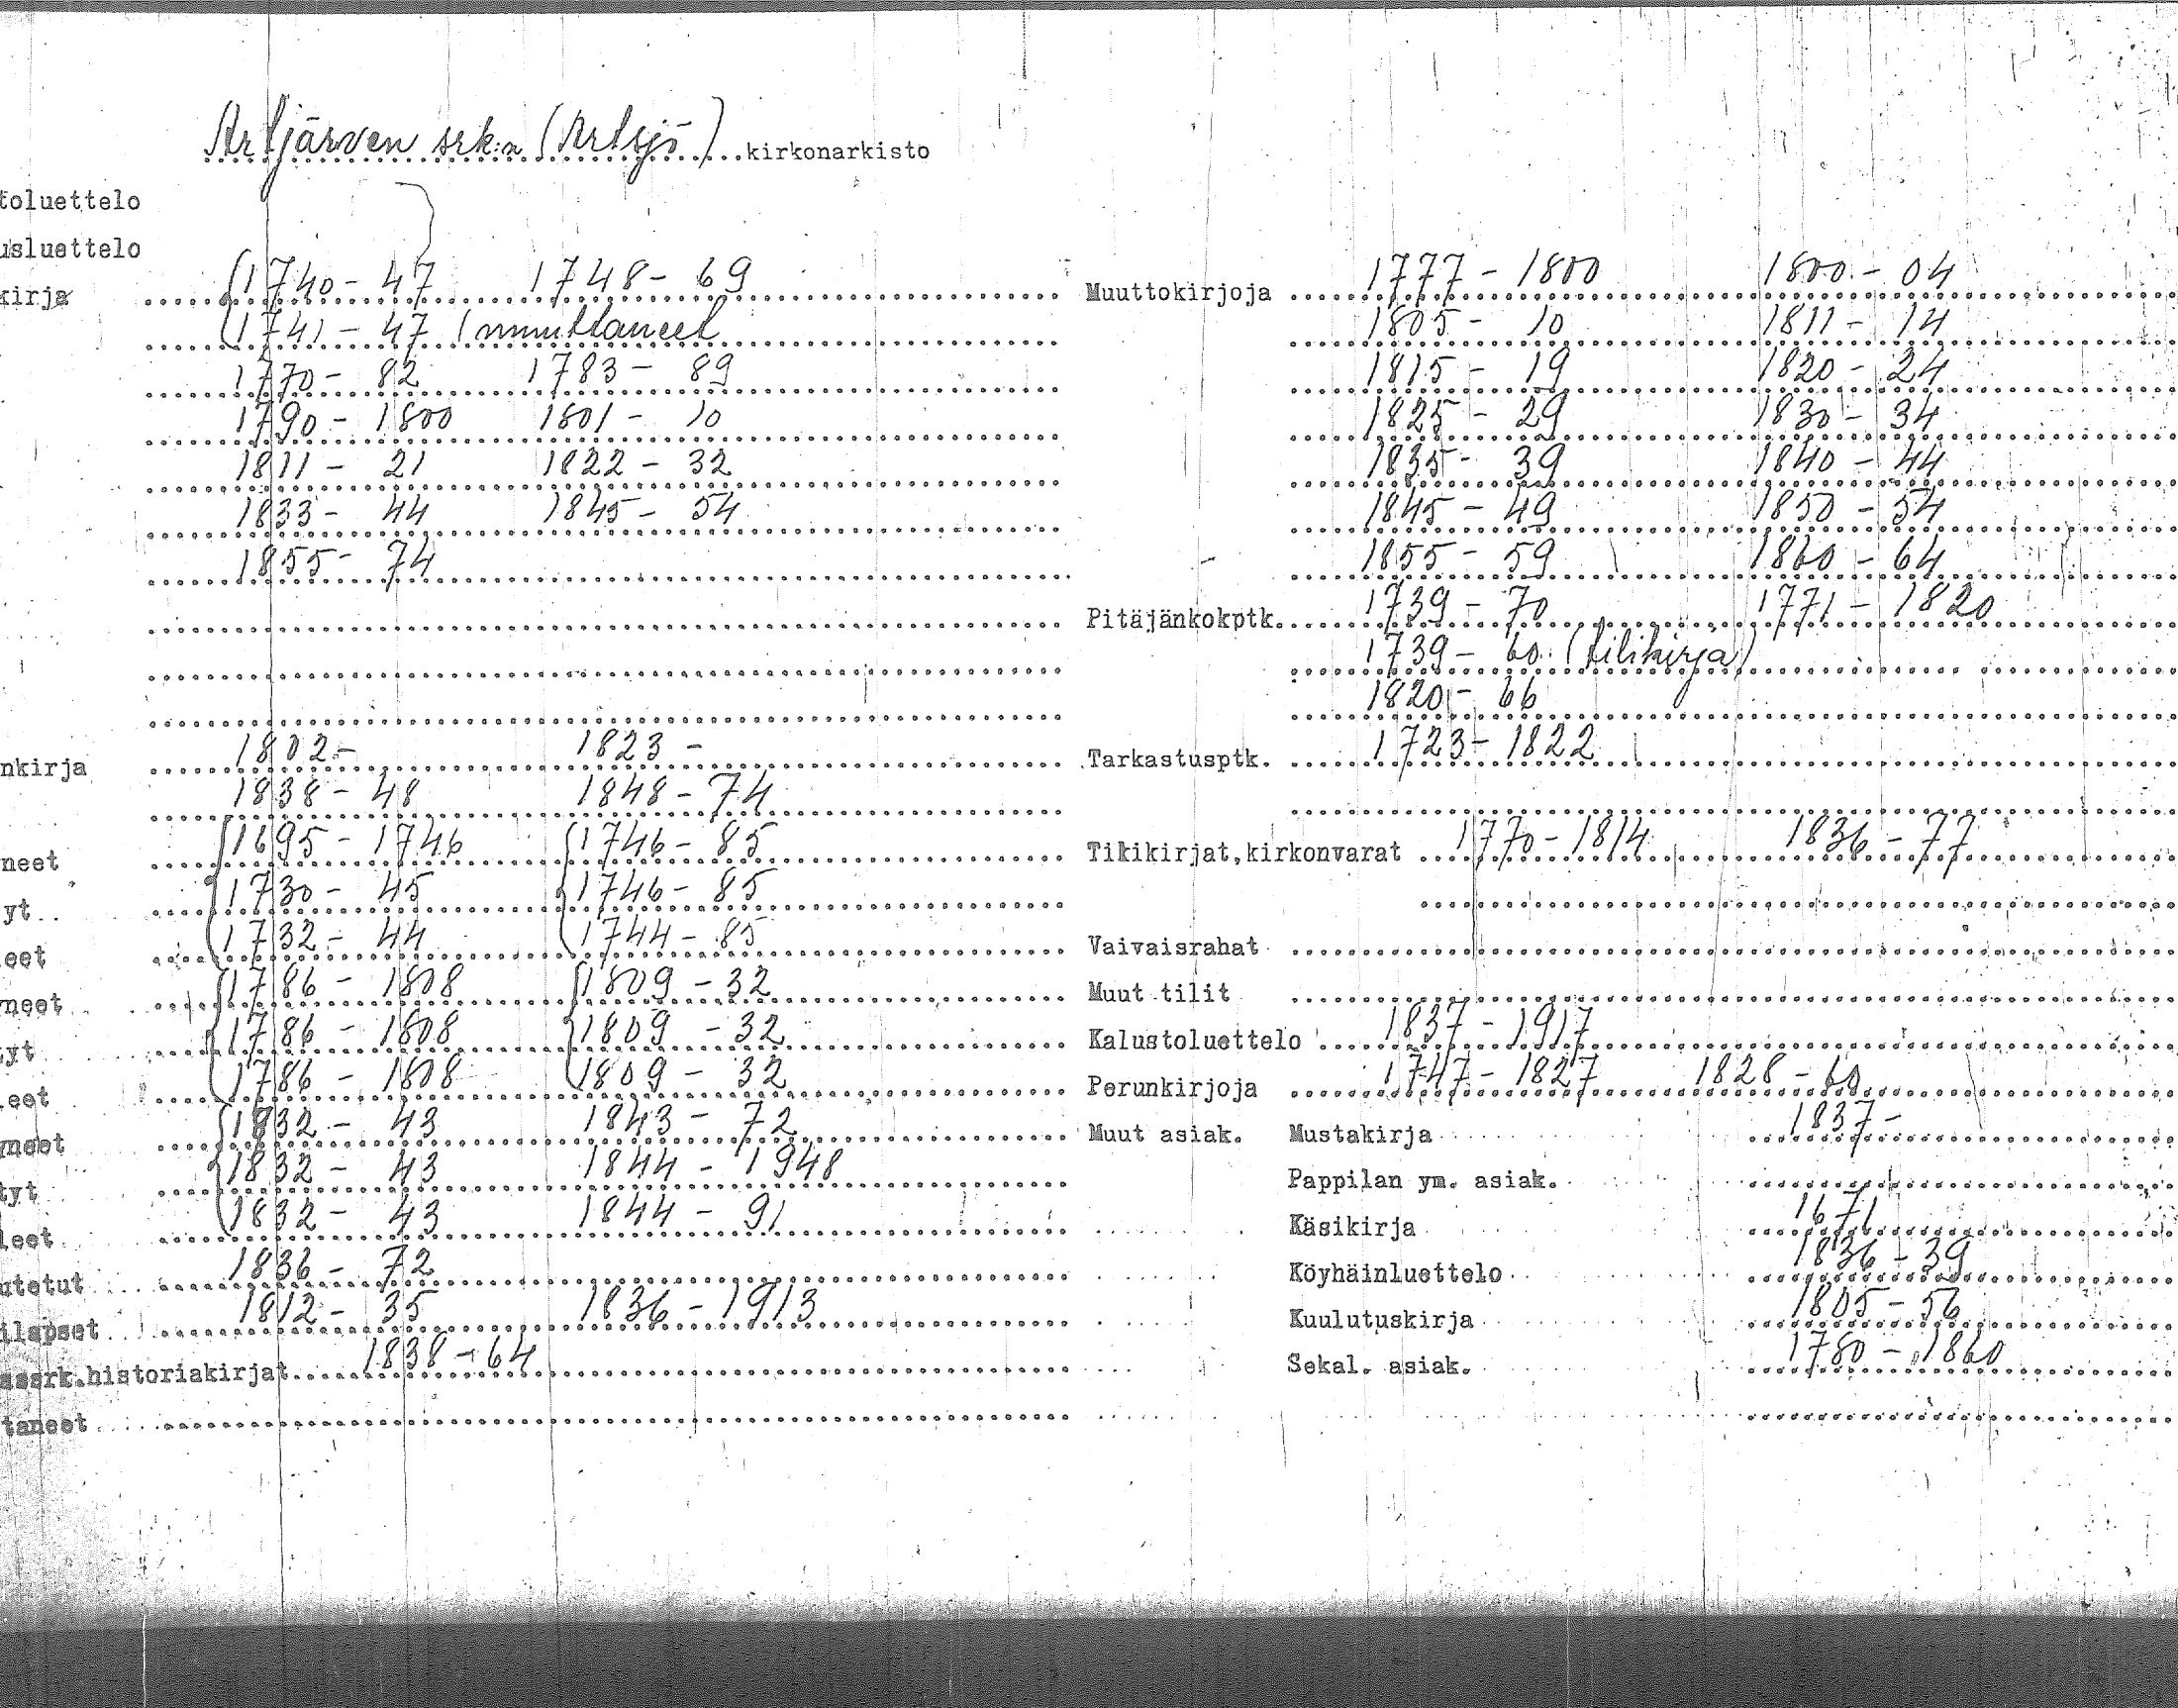 Artjärven srk:a (Artsjö) kirkonarkisto
toluettelo
usluettelo
kirja 1740 - 47 1748 - 69
1741 - 47 (muuttaneet
1770 - 82 1783 - 89
1790 - 1800 1801 - 10
1811 - 21 1822 - 32
1833 - 44 1845 - 54
1855 - 74
nkirja 1802 - 1823 -
1838 - 48 1848 - 74
neet 1695 - 1746 1746 - 85
yt 1730 - 45 1746 - 85
eet 1732 - 44 1744 - 85
neet 1786 - 1808 1809 - 32
tyt 1786 - 1808 1809 - 32
leet 1786 - 1808 1809 - 32
yneet 1832 - 43 1843 - 72
tyt 1832 - 43 1844 - 1948
leet 1832 - 43 1844 - 91
utetut 1836 - 72
ilapset 1812 - 35 1836 - 1913
assrk.historiakirjat 1838 - 64
taneet
Muuttokirjoja 1777 - 1800 1800 - 04
1805 - 10 1811 - 14
1815 - 19 1820 - 24
1825 - 29 1830 - 34
1835 - 39 1840 - 44
1845 - 49 1850 - 54
1855 - 59 1860 - 64
Pitäjänkokptk. 1739 - 70 1771 - 1820
1739 - 60 (tilikirja)
1820 - 66
Tarkastusptk. 1723 - 1822
Tilikirjat,kirkonvarat 1770 - 1814 1836 - 77
Vaivaisrahat
Muut tilit
Kalustoluettelo 1837 - 1917
Perunkirjoja 1747 - 1827 1828 - 60
Muut asiak. Mustakirja 1837 -
Pappilan ym. asiak.
Käsikirja 1671
Köyhäinluettelo 1836 - 39
Kuulutuskirja 1805 - 56
Sekal. asiak. 1780 - 1860